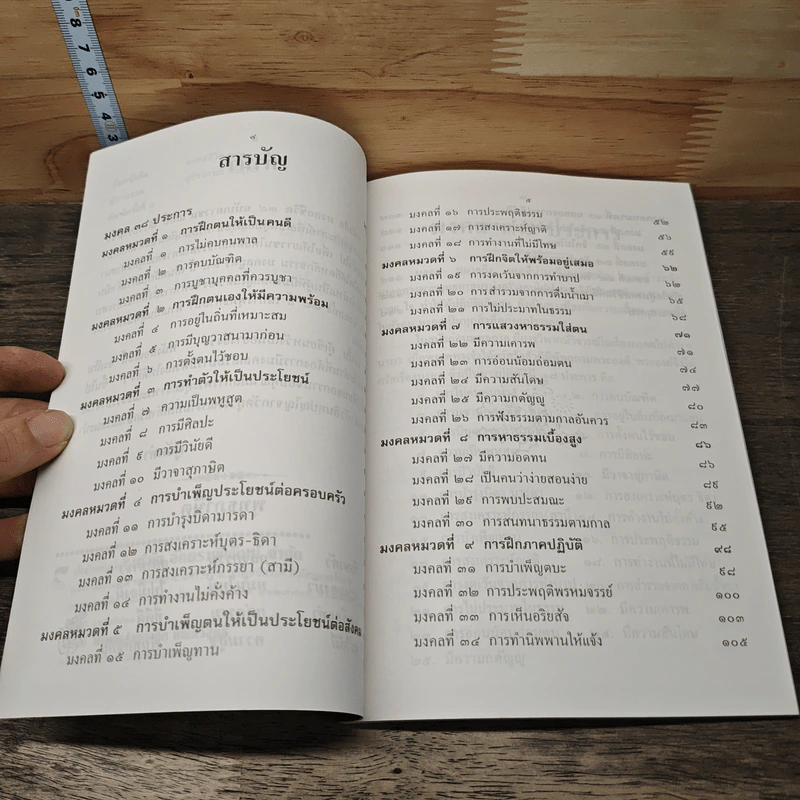 สารบัญ
มงคล ๓๘ ประการ
มงคลหมวดที่ ๑ การฝึกตนให้เป็นคนดี
มงคลที่ ๑ การไม่คบคนพาล
มงคลที่ ๒ การคบบัณฑิต
มงคลที่ ๓ การบูชาบุคคลที่ควรบูชา
มงคลหมวดที่ ๒ การฝึกตนเองให้มีความพร้อม
มงคลที่ ๔ การอยู่ในถิ่นที่เหมาะสม
มงคลที่ ๕ การมีบุญวาสนามาก่อน
มงคลที่ ๖ การตั้งตนไว้ชอบ
มงคลหมวดที่ ๓ การทำตัวให้เป็นประโยชน์
มงคลที่ ๗ ความเป็นพหูสูต
มงคลที่ ๘ การมีศิลปะ
มงคลที่ ๙ การมีวินัยดี
มงคลที่ ๑๐ มีวาจาสุภาษิต
มงคลหมวดที่ ๔ การบำเพ็ญประโยชน์ต่อครอบครัว
มงคลที่ ๑๑ การบำรุงบิดามารดา
มงคลที่ ๑๒ การสงเคราะห์บุตร-ธิดา
มงคลที่ ๑๓ การสงเคราะห์ภรรยา (สามี)
มงคลที่ ๑๔ การทำงานไม่คั่งค้าง
มงคลหมวดที่ ๕ การบำเพ็ญตนให้เป็นประโยชน์ต่อสังคม
มงคลที่ ๑๕ การบำเพ็ญทาน
มงคลที่ ๑๖ การประพฤติธรรม ๕๒
มงคลที่ ๑๗ การสงเคราะห์ญาติ ๕๖
มงคลที่ ๑๘ การทำงานที่ไม่มีโทษ ๕๙
มงคลหมวดที่ ๖ การฝึกจิตให้พร้อมอยู่เสมอ ๖๒
มงคลที่ ๑๙ การงดเว้นจากการทำบาป ๖๒
มงคลที่ ๒๐ การสำรวมจากการดื่มน้ำเมา ๖๕
มงคลที่ ๒๑ การไม่ประมาทในธรรม ๖๘
มงคลหมวดที่ ๗ การแสวงหาธรรมใส่ตน ๗๑
มงคลที่ ๒๒ มีความเคารพ ๗๑
มงคลที่ ๒๓ การอ่อนน้อมถ่อมตน ๗๔
มงคลที่ ๒๔ มีความสันโดษ ๗๗
มงคลที่ ๒๕ มีความกตัญญู ๘๐
มงคลที่ ๒๖ การฟังธรรมตามกาลอันควร ๘๓
มงคลหมวดที่ ๘ การหาธรรมเบื้องสูง ๘๖
มงคลที่ ๒๗ มีความอดทน ๘๖
มงคลที่ ๒๘ เป็นคนว่าง่ายสอนง่าย ๘๙
มงคลที่ ๒๙ การพบปะสมณะ ๙๒
มงคลที่ ๓๐ การสนทนาธรรมตามกาล ๙๕
มงคลหมวดที่ ๙ การฝึกภาคปฏิบัติ ๙๘
มงคลที่ ๓๑ การบำเพ็ญตบะ ๙๘
มงคลที่ ๓๒ การประพฤติพรหมจรรย์ ๑๐๐
มงคลที่ ๓๓ การเห็นอริยสัจ ๑๐๓
มงคลที่ ๓๔ การทำนิพพานให้แจ้ง ๑๐๕